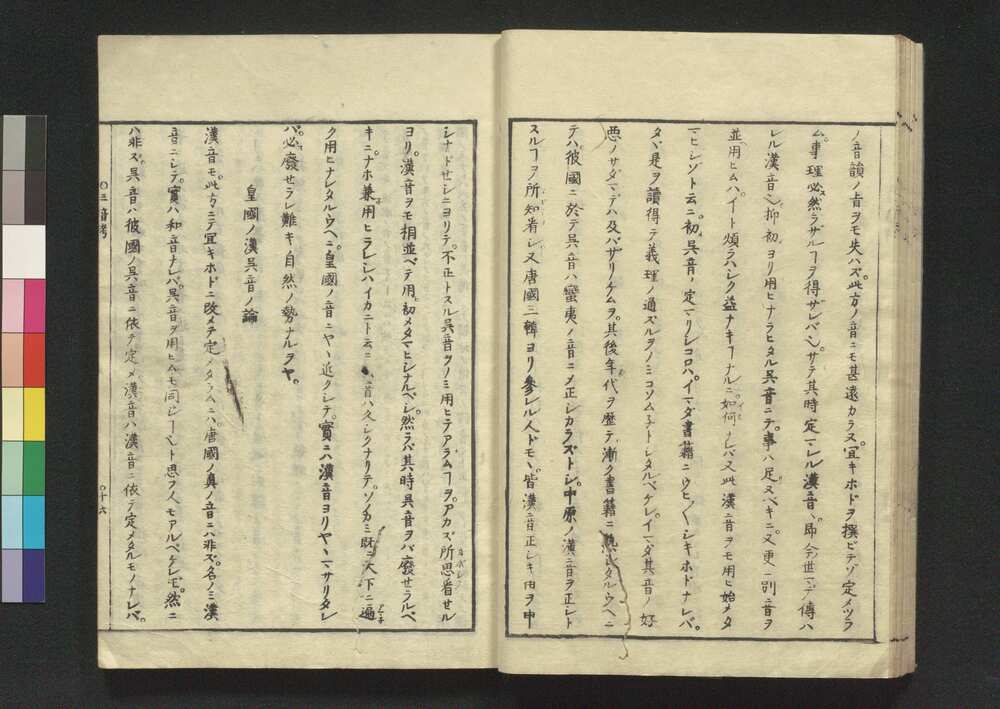 ノ音韻ノ旨ヲモ失ハズ。此方ノ音ニモ甚遠カラヌ。宜キホドヲ撰ビテゾ定メツラ
ム。事理必然ラザルヿヲ得ザレバ也。サテ其時定マレル漢音、即今世マデノ傳ハ
レル漢音也。抑初ヨリ用ヒナラヒタル呉音ニテ。事ハ足ヌベキニ。又更ニ別ニ音ヲ
並用ヒムハ。イト煩ラハシク益ナキヿナルニ。如何ナレバ又此漢音ヲモ用ヒ始メタ
マヒシゾト云ニ。初呉音ノ定マリシコロハ。イマダ書籍ニウヒ〱シキホドナレバ。
タヾ是ヲ讀得テ義理ノ通スルヲノミコソムネトシタルベケレ。イマダ其音ノ好
惡ノサダマデハ及バザリケムヲ。其後年代ヲ歴テ、漸ク書籍ニ熟シタルウヘニ
テハ彼國ニ於テ呉音ハ蠻夷ノ音ニメ正シカラズトシ。中原ノ漢音ヲ正シト
スルヿヲ所知看シ。又唐國三韓ヨリ參レル人ドモヽ。皆漢音正シキ由ヲ申
シナドセシニヨリテ。不正トスル呉音ヲノミ用ヒテアラムヿヲ。アカズ所思看セル
ヨリ。漢音ヲモ相並ベテ用ヒ初メタマヒシナルベシ。然ラバ其時呉音ヲバ廢セラルベ
キニ。ナホ兼用ヒラレシハイカニト云ニ、音ハ久シクナリテ。ソノカミ既ニ天下ニ遍
ク用ヒナレタルウヘニ。皇國ノ音ニヤヽ近クシテ。實ニハ漢音ヨリヤヽマサリタレ
バ。必廢セラレ難キ自然ノ勢ナルヲヤ。
皇國ノ漢呉音ノ論
漢音モ。此方ニテ宜キホドニ改メテ定メタラムニハ。唐國ノ眞ノ音ニハ非ズ。名ノミ漢
音ニシテ。實ハ和音ナレバ。呉音ヲ用ヒムモ同ジヿ也ト思フ人モアルベケレモ。然ニ
ハ非ズ。呉音ハ彼國ノ呉音ニ依テ定メ漢音ハ漢音ニ依テ定メタルモノナレバ。
〇三音考
〇十六